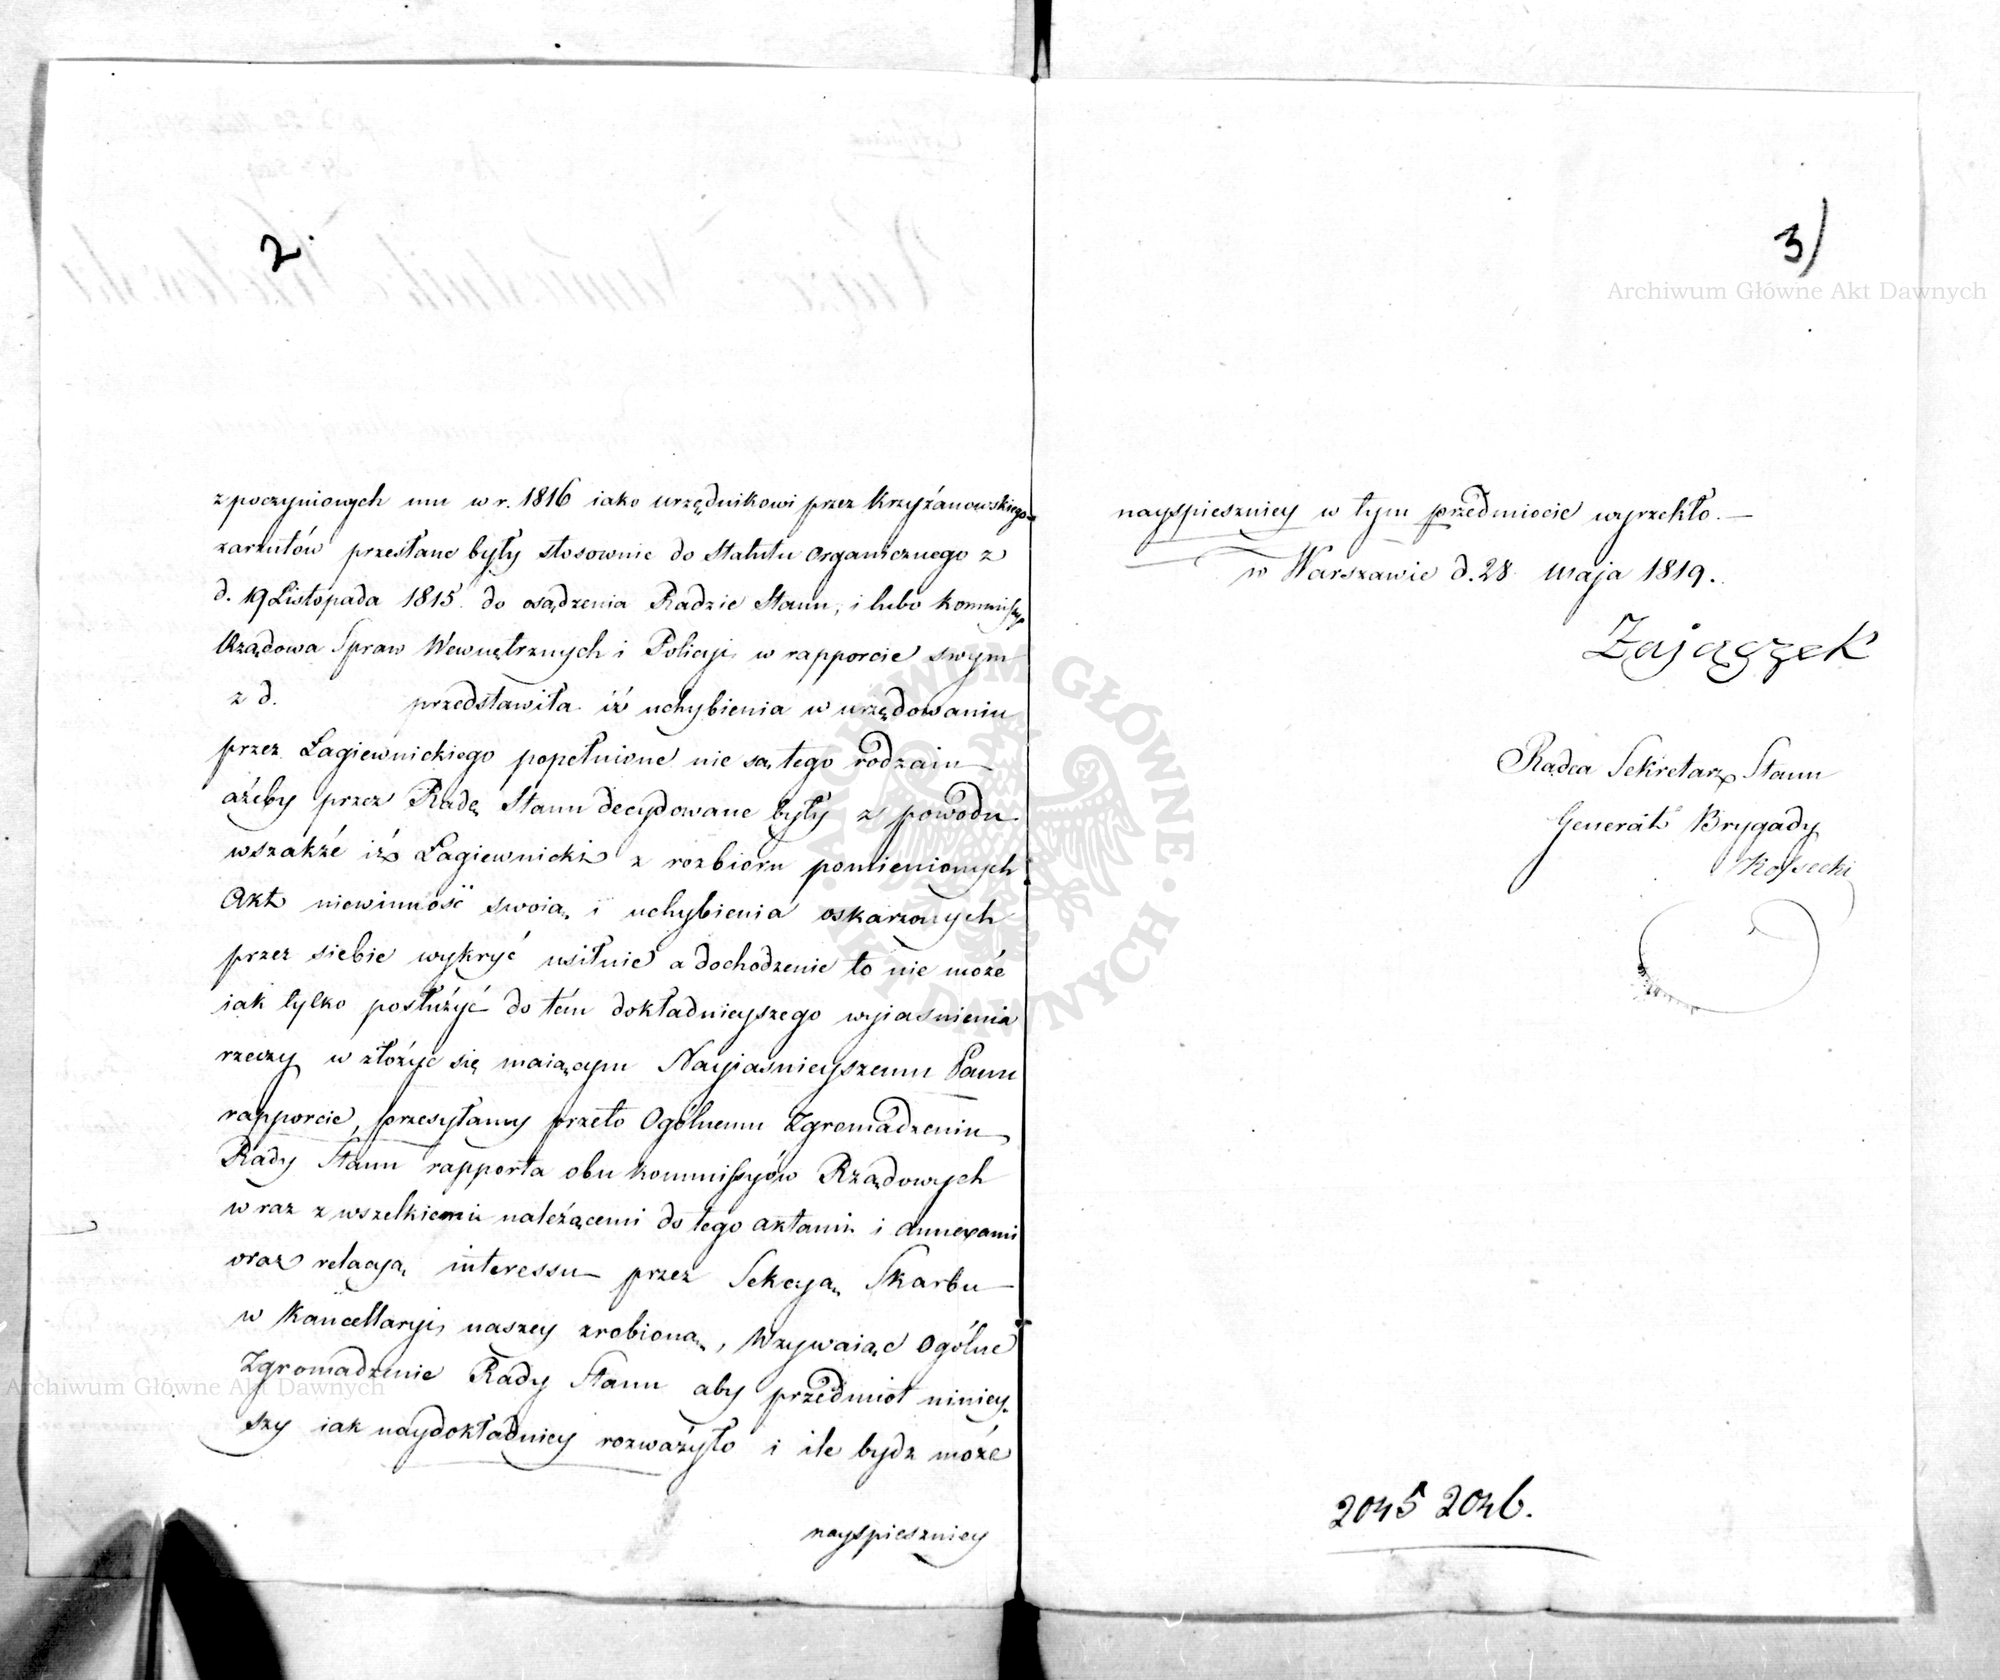 2.
z poczynionych mu w r. 1816 iako urzędnikowi przez Krzyżanowskiego
zarzutów przesłane były stosownie do Statutu Organicznego z
d. 19 Listopada 1815. do osądzenia Radzie Stanu, i lubo Kommissya
Rządowa Spraw Wewnętrznych i Policyi, w rapporcie swym
z d. przedstawiła iż uchybienia w urzędowaniu
przez Łagiewnickiego popełnione nie są tego rodzaiu
ażeby przez Radę Stanu decydowane były z powodu
wszakże iż Łagiewnicki z rozbioru pomienionych
Akt niewinność swoią i uchybienia oskarżonych
przez siebie wykryć usiłuie a dochodzenie to nie może
iak tylko posłużyć do tém dokładnieyszego wyiasnienia
rzeczy w złożyć się maiącym Nayiasnieyszemu Panu
rapporcie, przesyłamy przeto Ogólnemu Zgromadzeniu
Rady Stanu rapporta obu Kommissyów Rządowych
wraz z wszelkiemi należącemi do tego aktami i annexami
oraz relacyą interessu przez Sekcyą Skarbu
w Kancellaryi naszey zrobioną, Wzywaiąc Ogólne
Zgromadzenie Rady Stanu aby przedmiot niniey-
szy iak naydokładniey rozważyło i ile bydz może
nayspieszniey
3)
Archiwum Główne Akt Dawnych
nayspieszniey w tym przedmiocie wyrzekło.—
w Warszawie d. 28 Maja 1819.
Zajączek
Radca Sekretarz Stanu
Generał Brygady
Kossecki
2045 2046.
ARCHIWUM GŁÓWNE AKT DAWNYCH
Archiwum Główne Akt Dawnych